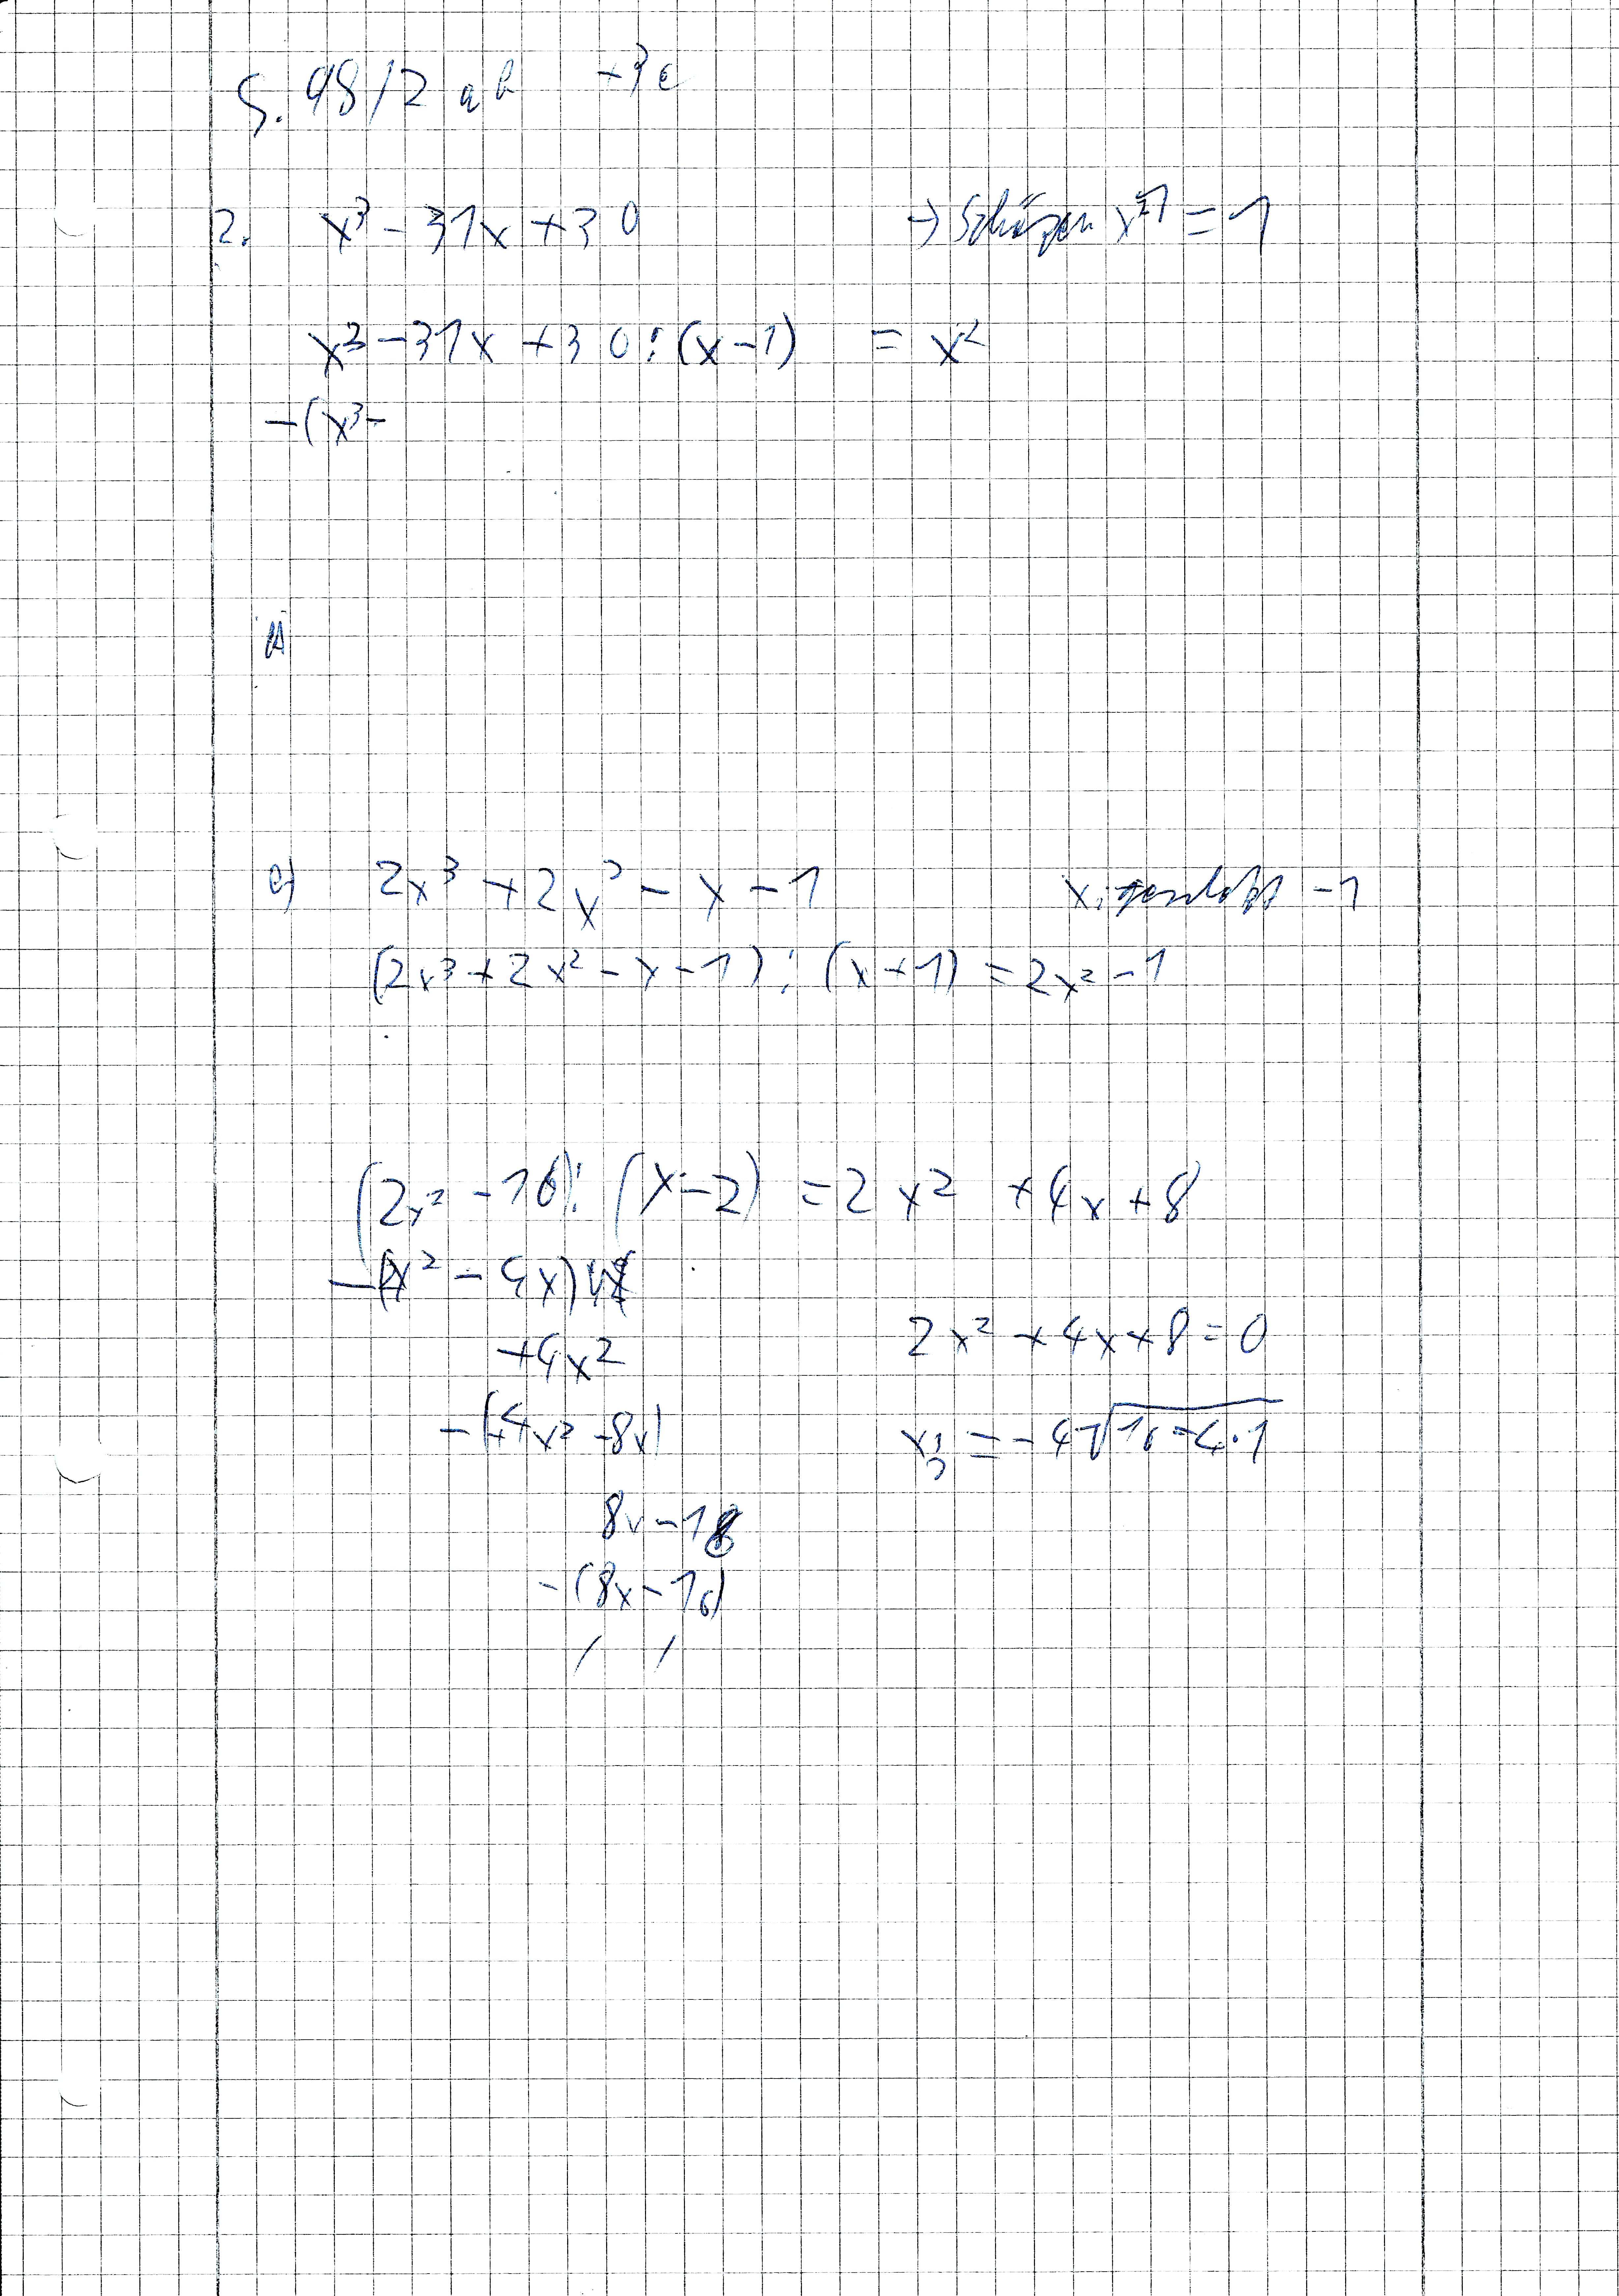 S. 98/2 a b +3c
2. x³ - 31x + 30 → Schätzen x = 1
x³ - 31x + 30 : (x - 1) = x²
-(x³ -
e) 2x³ + 2x² - x - 1 x₁ -1
(2x³ + 2x² - x - 1) : (x + 1) = 2x² - 1
(2x² - 16) : (x - 2) = 2x² + 4x + 8
-(2x² - 4x)
+4x² 2x² + 4x + 8 = 0
-(+4x² - 8x) = -4 √16 - 4·1
8x - 16
-(8x - 16)
/ /